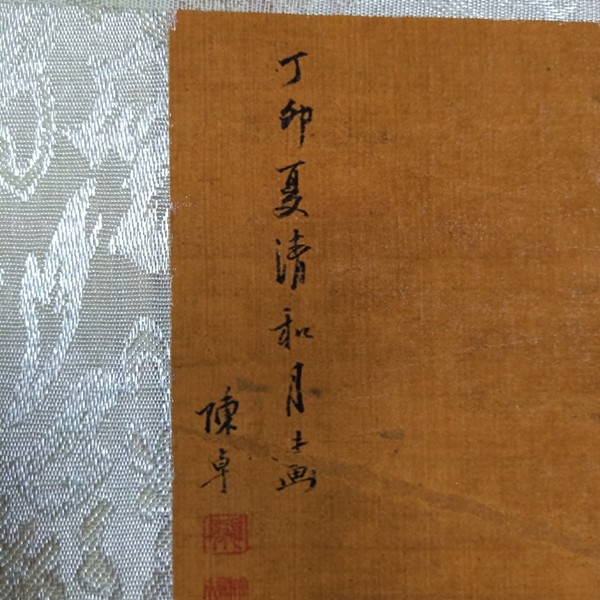 丁卯夏清和月畫
陳卓